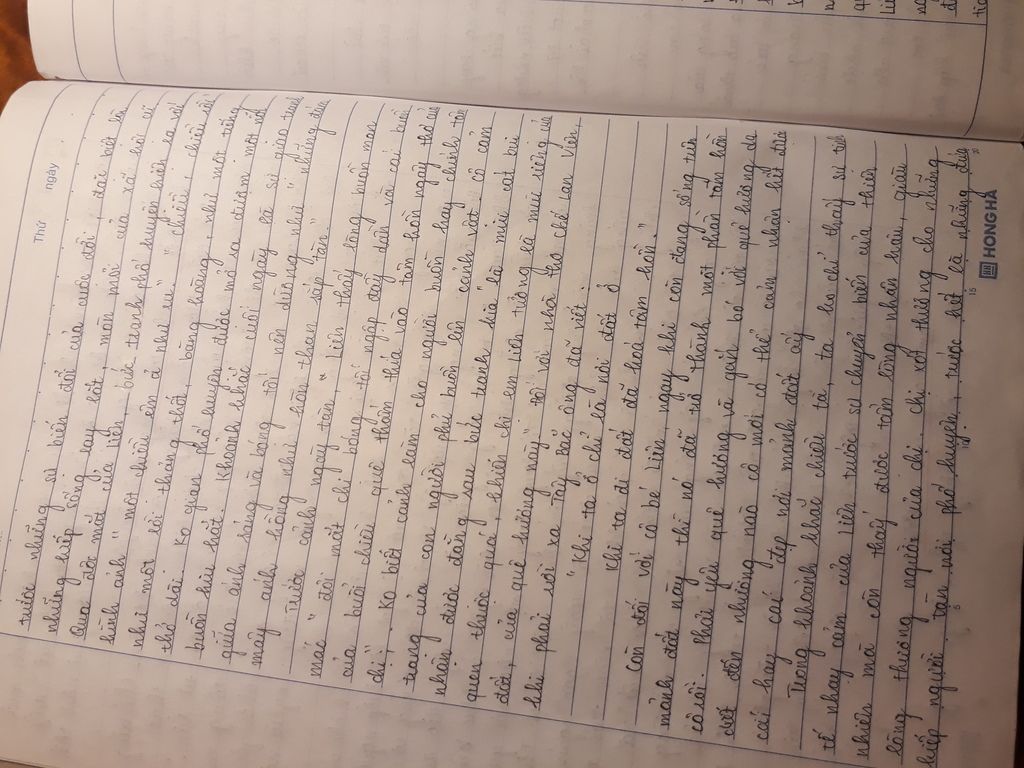 Thứ ngày
trước những sự biến đổi của cuộc đời, đai biệt là
những kiếp sống nay lột, mòn mỏi của xã hội cũ
Qua đôi mắt của Liên, bức tranh phố huyện hiện ra với
hình ảnh "một chiều êm ả như ru" "chiều, chiều rồi"
như một lời thản thốt, bâng khuâng, như một tiếng
thở dài. Ko gian phố huyện được mở ra đượm một nét
buồn hiu hắt. Khoảnh khắc cuối ngày là sự giao tranh
giữa ánh sáng và bóng tối nên dường như "những đám
mây ánh hồng như hòn than sắp tàn"
Trước cảnh ngày tàn, "Liên thấy lòng buồn man
mác" "đôi mắt chị bóng tối ngập đầy dần và cái buồn
của buổi chiều quê thấm thía vào tâm hồn ngây thơ của
chị". Ko biết cảnh làm cho người buồn hay chính tâm
trạng của con người phủ buồn lên cảnh vật. Có cảm
nhận được đằng sau bức tranh kia là mùi cát bụi
quen thuộc quá, khiến chị em Liên tưởng là mùi riêng của
đất, của quê hương này. Đối với nhà thơ Chế Lan Viên,
khi phải rời xa Tây Bắc ông đã viết:
"Khi ta ở chỉ là nơi đất ở
Khi ta đi đất đã hoá tâm hồn."
Còn đối với cô bé Liên, ngay khi còn đang sống trên
mảnh đất này thì nó đã trở thành một phần tâm hồn
cô rồi. Phải yêu quê hương và gắn bó với quê hương da
diết đến nhường nào cô mới có thể cảm nhận hết được
cái hay cái đẹp nơi mảnh đất ấy.
Trong khoảnh khắc chiều tà, ta ko chỉ thấy sự tinh
tế nhạy cảm của Liên trước sự chuyển biến của thiên
nhiên mà còn thấy được tấm lòng nhân hậu, giàu
lòng thương người của chị. Chị xót thương cho những
kiếp người tàn nơi phố huyện, trước hết là những đứa
HONG HA
5 10 15